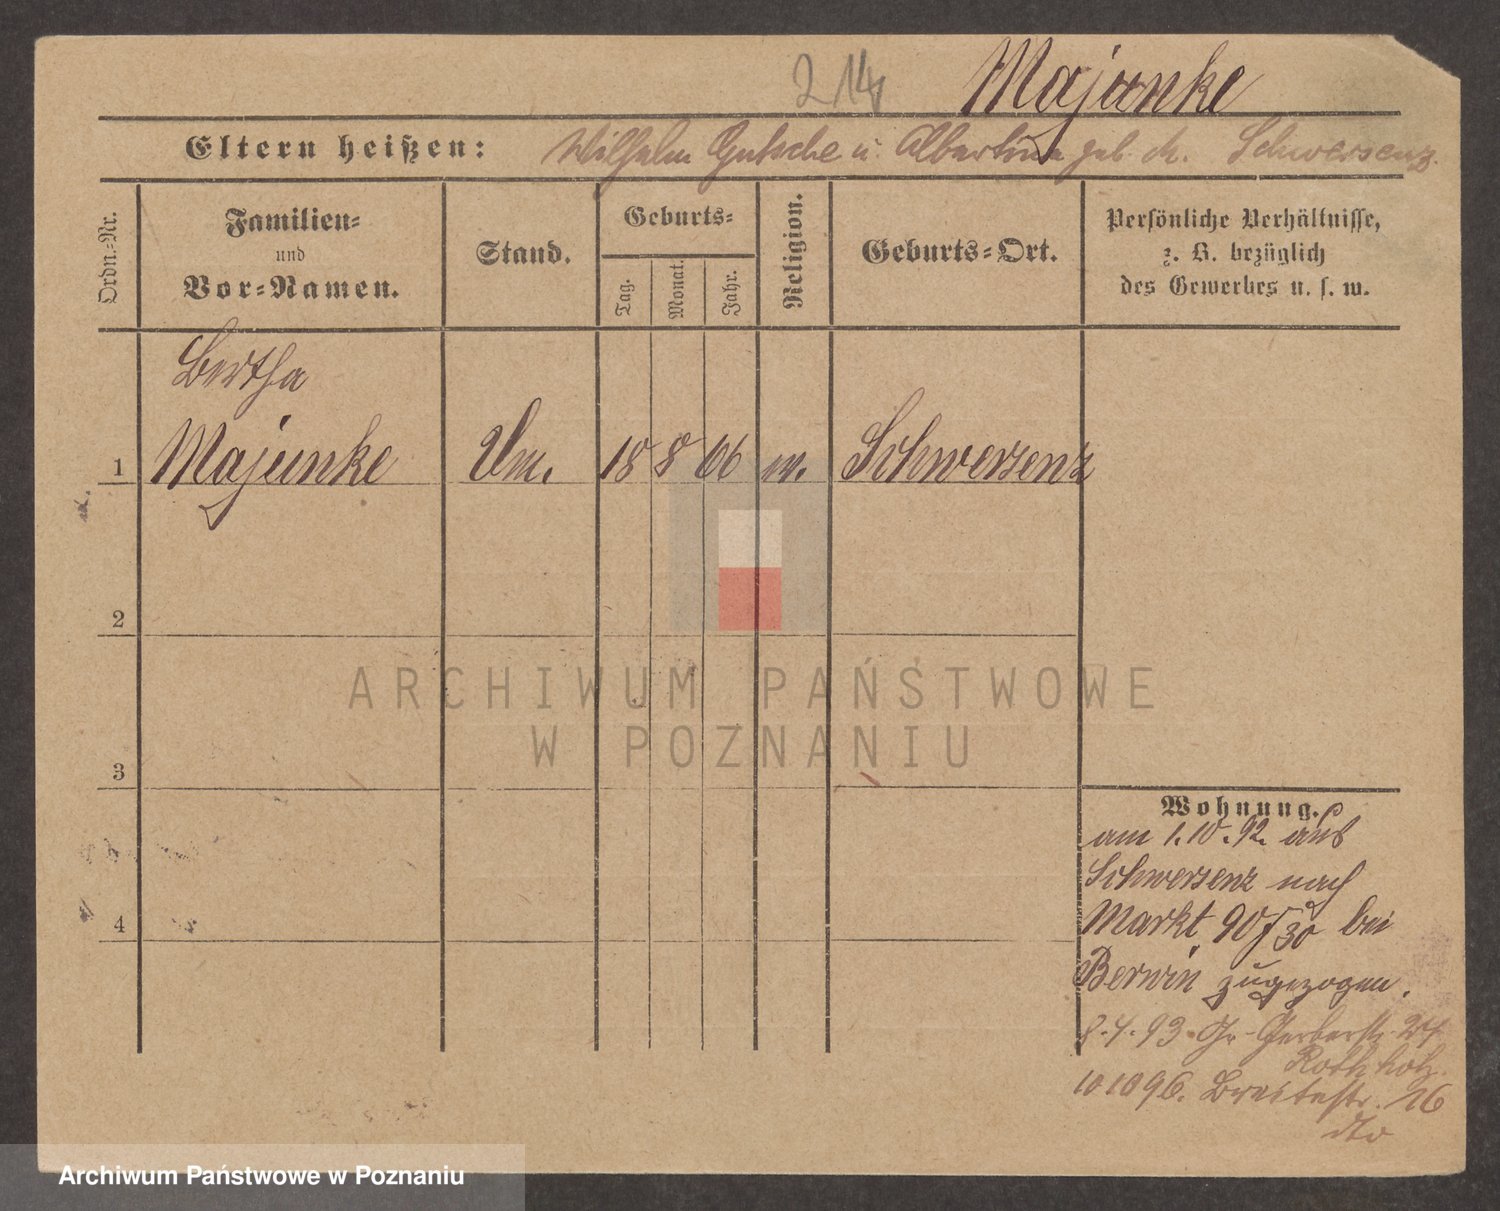 214 Majunke
Eltern heißen: Wilhelm Gutsche u. Albertine geb. M. Schwersenz.
Ordn.-Nr.
Familien-
und
Vor-Namen.
Stand.
Geburts-
Tag.
Monat.
Jahr.
Religion.
Geburts-Ort.
Persönliche Verhältnisse,
z. B. bezüglich
des Gewerbes u. s. w.
Bertha
1 Majunke 18 8 66 Schwersenz
2
3
4
Wohnung.
am 1.10.92. aus
Schwersenz nach
Markt 90/30 bei
Berwin zugezogen.
8.4.93. Gr. Gerberstr. 24
Rothholz.
10 10 96. Breitestr. 16
dto
ARCHIWUM PAŃSTWOWE
W POZNANIU
Archiwum Państwowe w Poznaniu